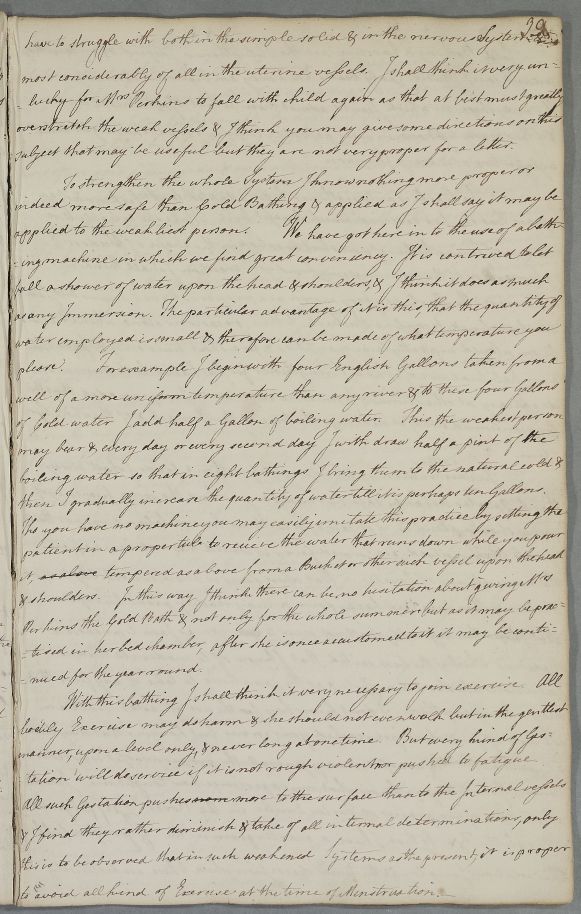 29
have to struggle with both in the simple solid & in the nervous System &
most considerably of all in the uterine vessels. I shall think it very un-
-lucky for Mrs Perkins to fall with child again as that at best must greatly
overstretch the weak vessels & I think you may give some directions on this
subject that may be useful but they are not very proper for a letter.
To strengthen the whole System I know nothing more proper or
indeed more safe than Cold Bathing & applied as I shall say it may be
applied to the weakliest person. We have got here in to the use of a bath-
-ing machine in which we find great conveniency. It is contrived to let
fall a shower of water upon the head & shoulders & I think it does as much
as any Immersion. The particular advantage of it is this, that the quantity of
water employed is small & therefore can be made of what temperature you
please. For example I begin with four English Gallons taken from a
well of a more uniform temperature than any river & to these four Gallons
of Cold water I add half a Gallon of boiling water. This the weakest person
may bear & every day or every second day I with draw half a pint of the
boiling water so that in eight bathings I bring them to the natural cold &
then I gradually increase the quantity of water till it is perhaps ten Gallons.
Tho you have no machine you may easily imitate this practice by setting the
patient in a proper tub to receive the water that runs down while you pour
it as above tempered as above from a Bucket or other such vessel upon the head
& shoulders. In this way I think there can be no hesitation about giving Mrs
Perkins the Cold Bath & not only for the whole summer but as it may be prac-
-tised in her bed chamber, after she is once accustomed to it it may be conti-
-nued for the year round.
With this bathing I shall think it very necessary to join exercise. All
bodily Exercise may do harm & she should not even walk but in the gentlest
manner, upon a level only, & never long at one time. But every kind of Ges-
-tation will do service if it is not rough violent nor pushed to fatigue
All such Gestation pushes more to the surface than to the Internal vessels
& I find they rather diminish & take of all internal determinations, only
this is to be observed that in such weakened Systems as the present, it is proper
to avoid all kind of Exercise at the time of Menstruation.